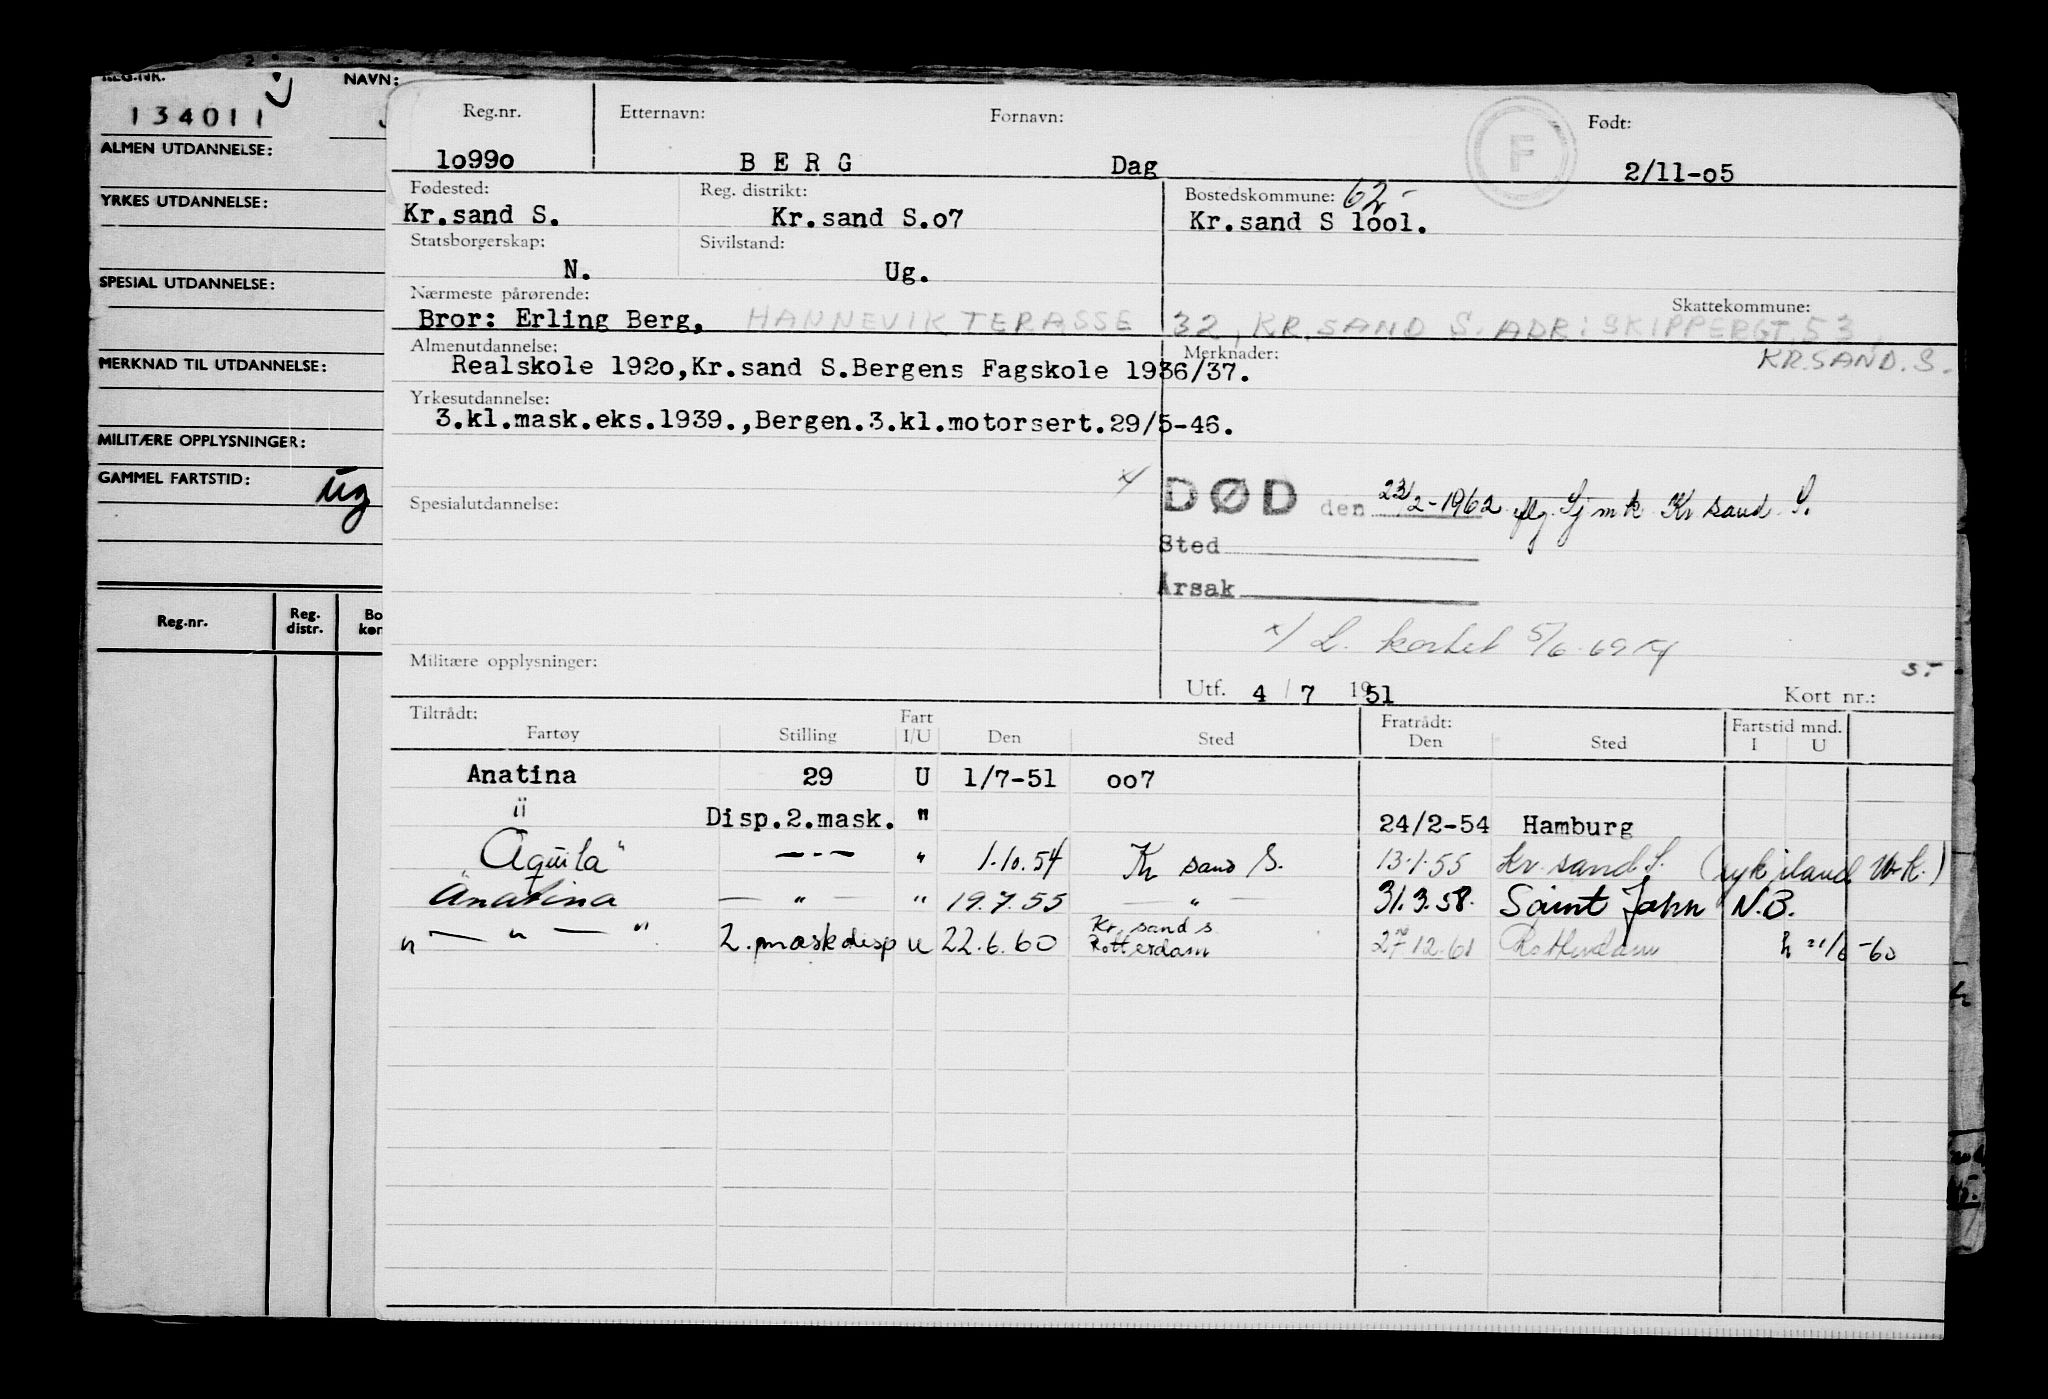 REG.NR. NAVN:
134011
ALMEN UTDANNELSE:
YRKES UTDANNELSE:
SPESIAL UTDANNELSE:
MERKNAD TIL UTDANNELSE:
MILITÆRE OPPLYSNINGER:
GAMMEL FARTSTID: ug
Reg.nr. Reg. distr.
Reg.nr. Etternavn: Fornavn: F Født:
lo99o BERG Dag 2/11-o5
Fødested: Reg. distrikt: Bostedskommune: 62-
Kr.sand S. Kr.sand S.o7 Kr.sand S lool.
Statsborgerskap: Sivilstand:
N. Ug.
Nærmeste pårørende: Skattekommune:
Bror: Erling Berg, HANNEVIK TERASSE 32, KR.SAND S. ADR: SKIPPERGT. 53,
KR.SAND. S.
Almenutdannelse: Merknader:
Realskole 192o,Kr.sand S.Bergens Fagskole 1936/37.
Yrkesutdannelse:
3.kl.mask.eks.1939.,Bergen.3.kl.motorsert.29/5-46.
x/ DØD den 23/2-1962 iflg. Sjmk Kr sand S.
Spesialutdannelse:
Sted
Årsak
x/ L. kortet 5/6-69
Militære opplysninger:
Utf. 4/7 1951 Kort nr.:
Tiltrådt: Fart Fratrådt: Fartstid mnd.
Fartøy Stilling I/U Den Sted Den Sted I U
Anatina 29 U 1/7-51 oo7
" Disp.2.mask. " 24/2-54 Hamburg
Aquila" —"— " 1.10.54 Kr sand S. 13.1.55 Kr. sand S. (syk iland W.K.)
"Anatina — " — " 19.7.55 — " — 31.3.58. Saint John N.B.
" — " — " 2.maskdisp u 22.6.60 Kr. sand s
Rotterdam 27 12.61 Rotterdam h 21/6-60